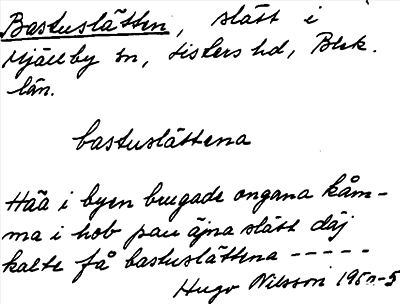 Bastuslätten, slätt i
Mjällby sn, Listers hd, Blek.
län.
bastuslättena
Hää i byen brugade ongana kåm-
ma i hob pau äjna slätt däj
kalte få bastuslättena -----
Hugo Nilsson 1950-5